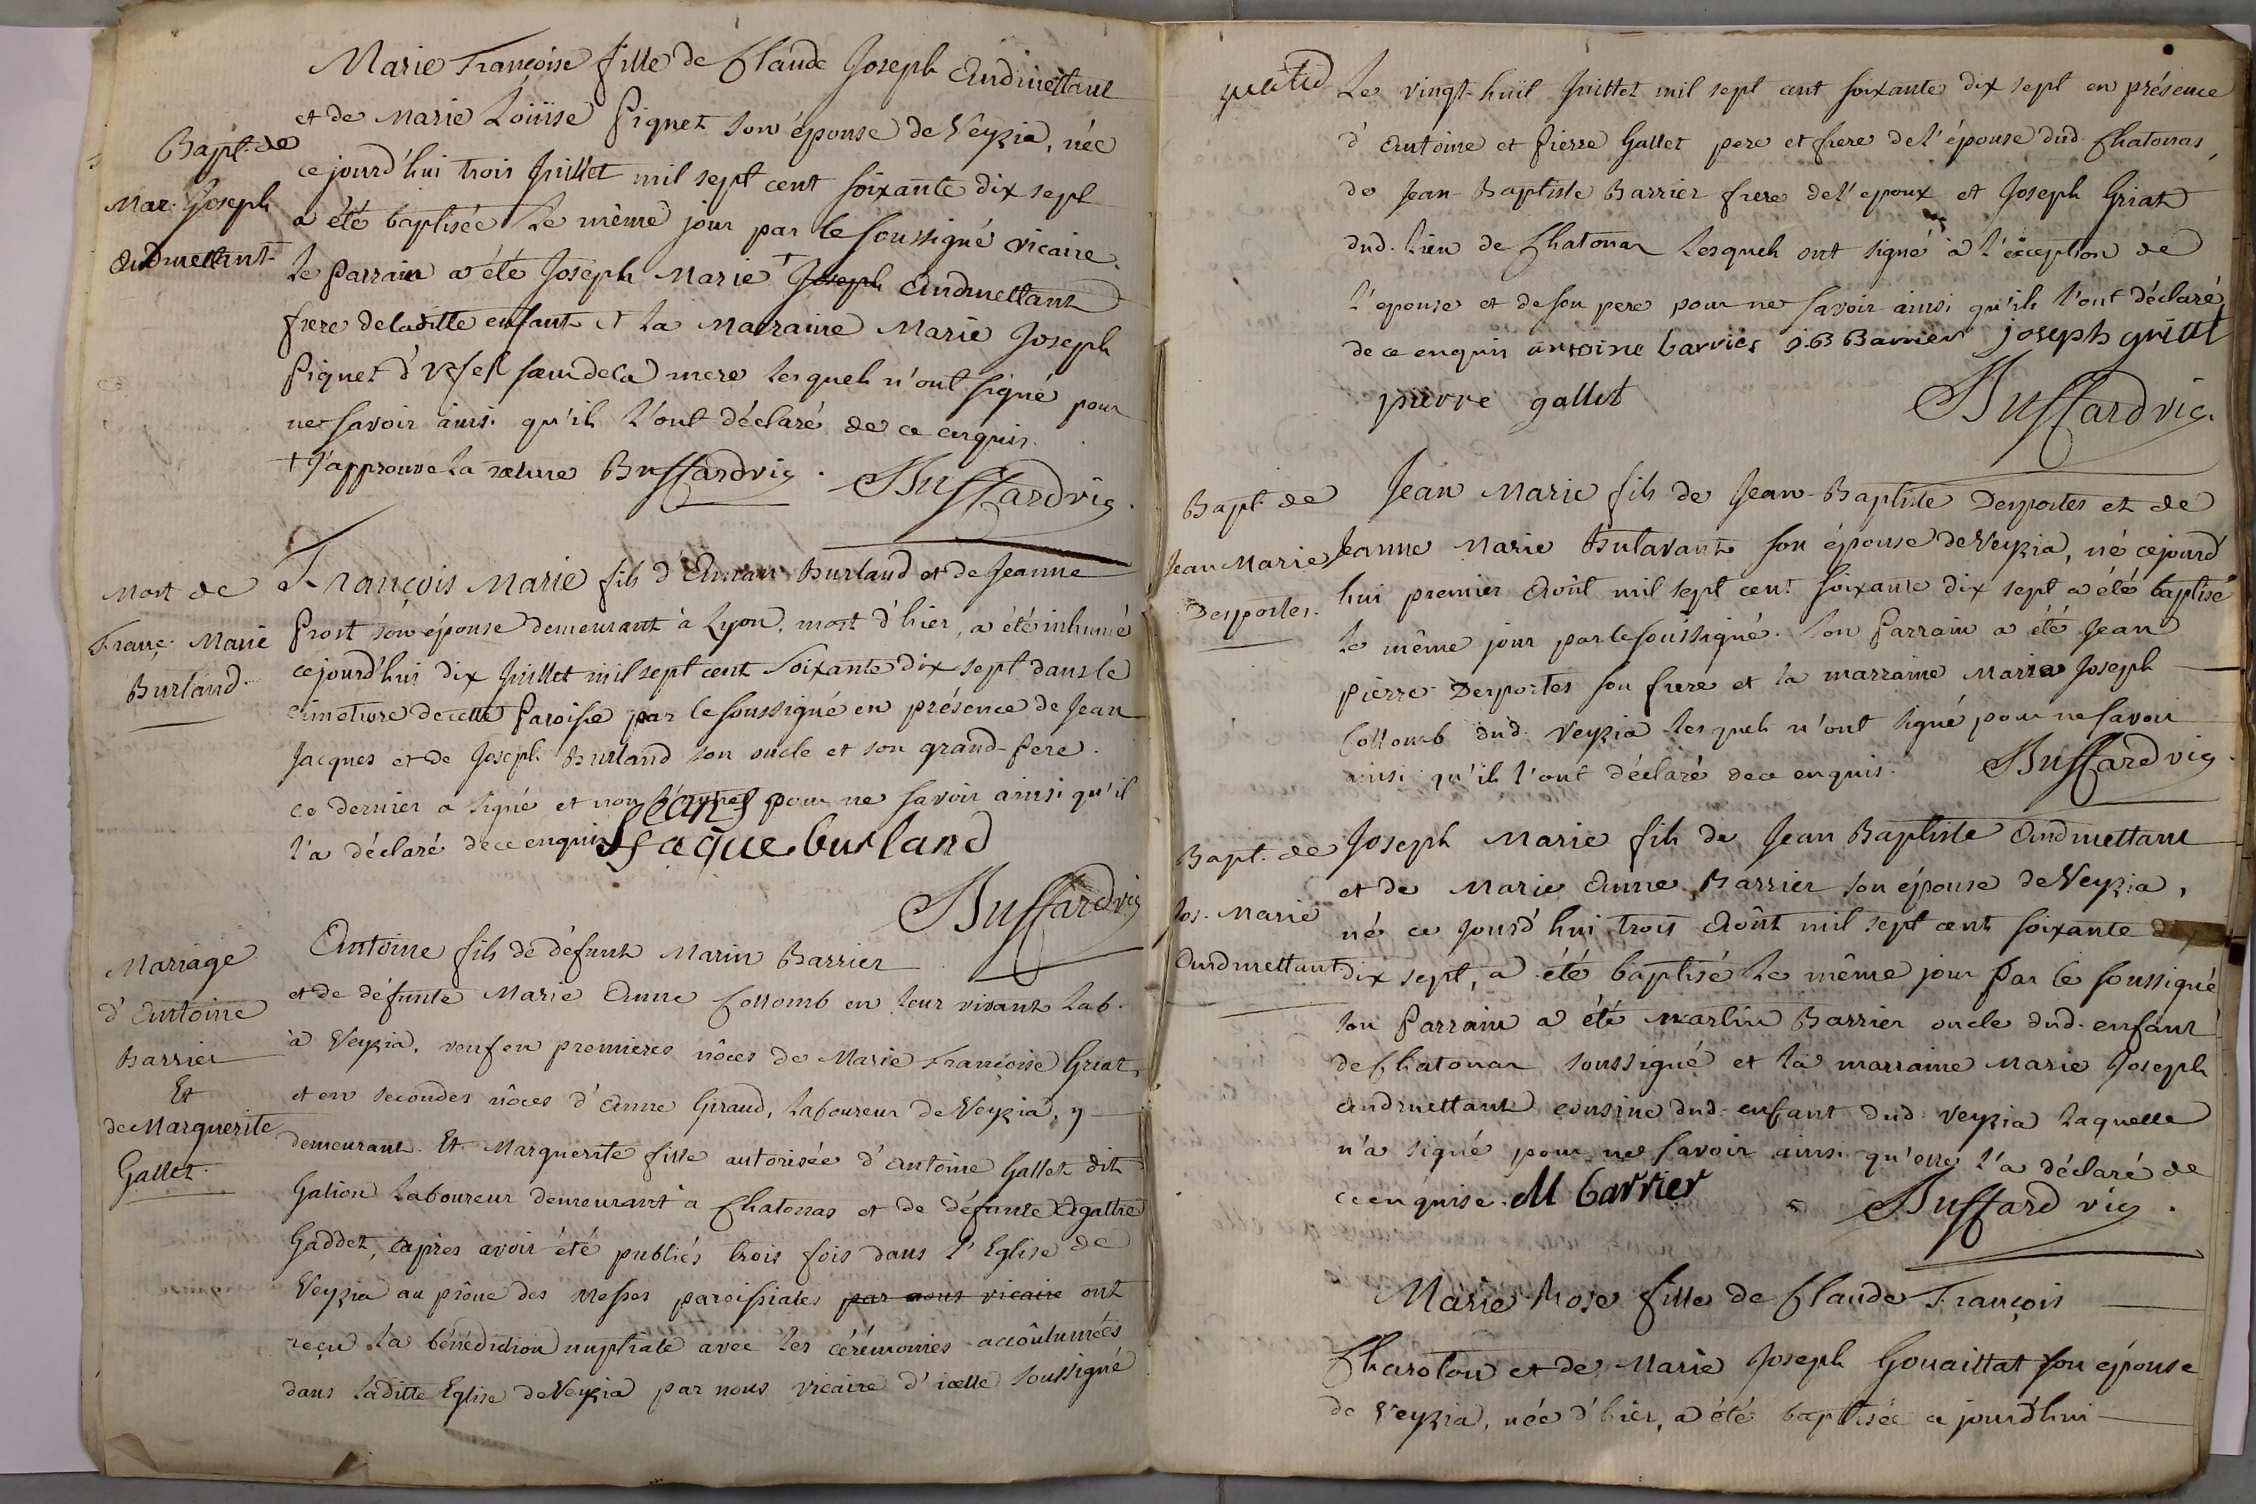 Marie Françoise fille de Claude Joseph Andmettant
et de Marie Loüise Piguet son épouse de Veyzia, née
Bapt. de
Mar. Joseph
Andmettant.
cejourd'hui trois Juillet mil sept cent soixante dix sept
a été baptisée le même jour par le soussigné vicaire.
le Parrain a été Joseph Marie + Joseph Andmettant
frere de laditte enfant et la Marraine Marie Joseph
Piguet d'Uffel sœur de la mere lesquels n'ont signé pour
ne savoir ainsi qu'ils l'ont déclaré de ce enquis.
+ J'approuve la rature Buffard vic. Buffard vic.
Mort de
Franç. Marie
Burland.
François Marie fils d'Anan Burland et de Jeanne
Prost son épouse demeurant à Lyon, mort d'hier, a été inhumé
cejourd'hui dix Juillet mil sept cent soixante dix sept dans le
cimetiere de cette Paroisse par le soussigné en présence de Jean
Jacques et de Joseph Burland son oncle et son grand-Pere.
ce dernier a signé et non l'autre pour ne savoir ainsi qu'il
l'a déclaré de ce enquis Jean Jaque burland
Buffard vic
Mariage
d'Antoine
Barrier
Et
de Marguerite
Gallet.
Antoine fils de défunt Marin Barrier
et de défunte Marie Anne Collomb en leur vivant lab.
à Veyzia, veuf en premieres nôces de Marie Françoise Griat,
et en secondes nôces d'Anne Giraud, laboureur de Veyzia, y
demeurant. Et Marguerite fille autorisée d'Antoine Gallet dit
Galion laboureur demeurant à Chatonas et de défunte Agathe
Gaddet, après avoir été publiés trois fois dans l'Eglise de
Veyzia au prône des Messes paroissiales par nous vicaire ont
reçu la bénédiction nuptiale avec les cérémonies accoûtumées
dans laditte Eglise de Veyzia par nous vicaire d'icelle soussigné
Le vingt-huit Juillet mil sept cent soixante dix sept en présence
d'Antoine et Pierre Gallet pere et frere de l'épouse dud. Chatonas,
de Jean-Baptiste Barrier frere de l'epoux et Joseph Griat
dud. lieu de Chatonas lesquels ont signé à l'exception de
l'epouse et de son pere pour ne savoir ainsi qu'ils l'ont déclaré
de ce enquis antoine barrier J.B Barrier joseph griat
pierre gallet
Buffard vic.
Bapt. de
Jean Marie
Desportes.
Jean Marie fils de Jean-Baptiste Desportes et de
Jeanne Marie Butavant son épouse de Veyzia, né cejourd'
hui premier Août mil sept cent soixante dix sept a été baptisé
le même jour par le soussigné. Son Parrain a été Jean
Pierre Desportes son frere et la marraine Marie Joseph
Collomb dud. Veyzia lesquels n'ont signé pour ne savoir
ainsi qu'ils l'ont déclaré de ce enquis. Buffard vic.
Bapt. de
Jos. Marie
Andmettant
Joseph Marie fils de Jean Baptiste Andmettant
et de Marie Anne Barrier son épouse de Veyzia,
né ce jourd'hui trois Août mil sept cent soixante
dix sept, a été baptisé le même jour par le soussigné
son Parrain a été Martin Barrier oncle dud. enfant
de Chatonas soussigné et la marraine Marie Joseph
Andmettant cousine dud. enfant dud. Veyzia laquelle
n'a signé pour ne savoir ainsi qu'elle l'a déclaré de
ce enquise. M barrier Buffard vic.
Marie-Rose fille de Claude François
Charoton et de Marie Joseph Gouaittat son épouse
de Veyzia, née d'hier, a été baptisée ce jourd'hui